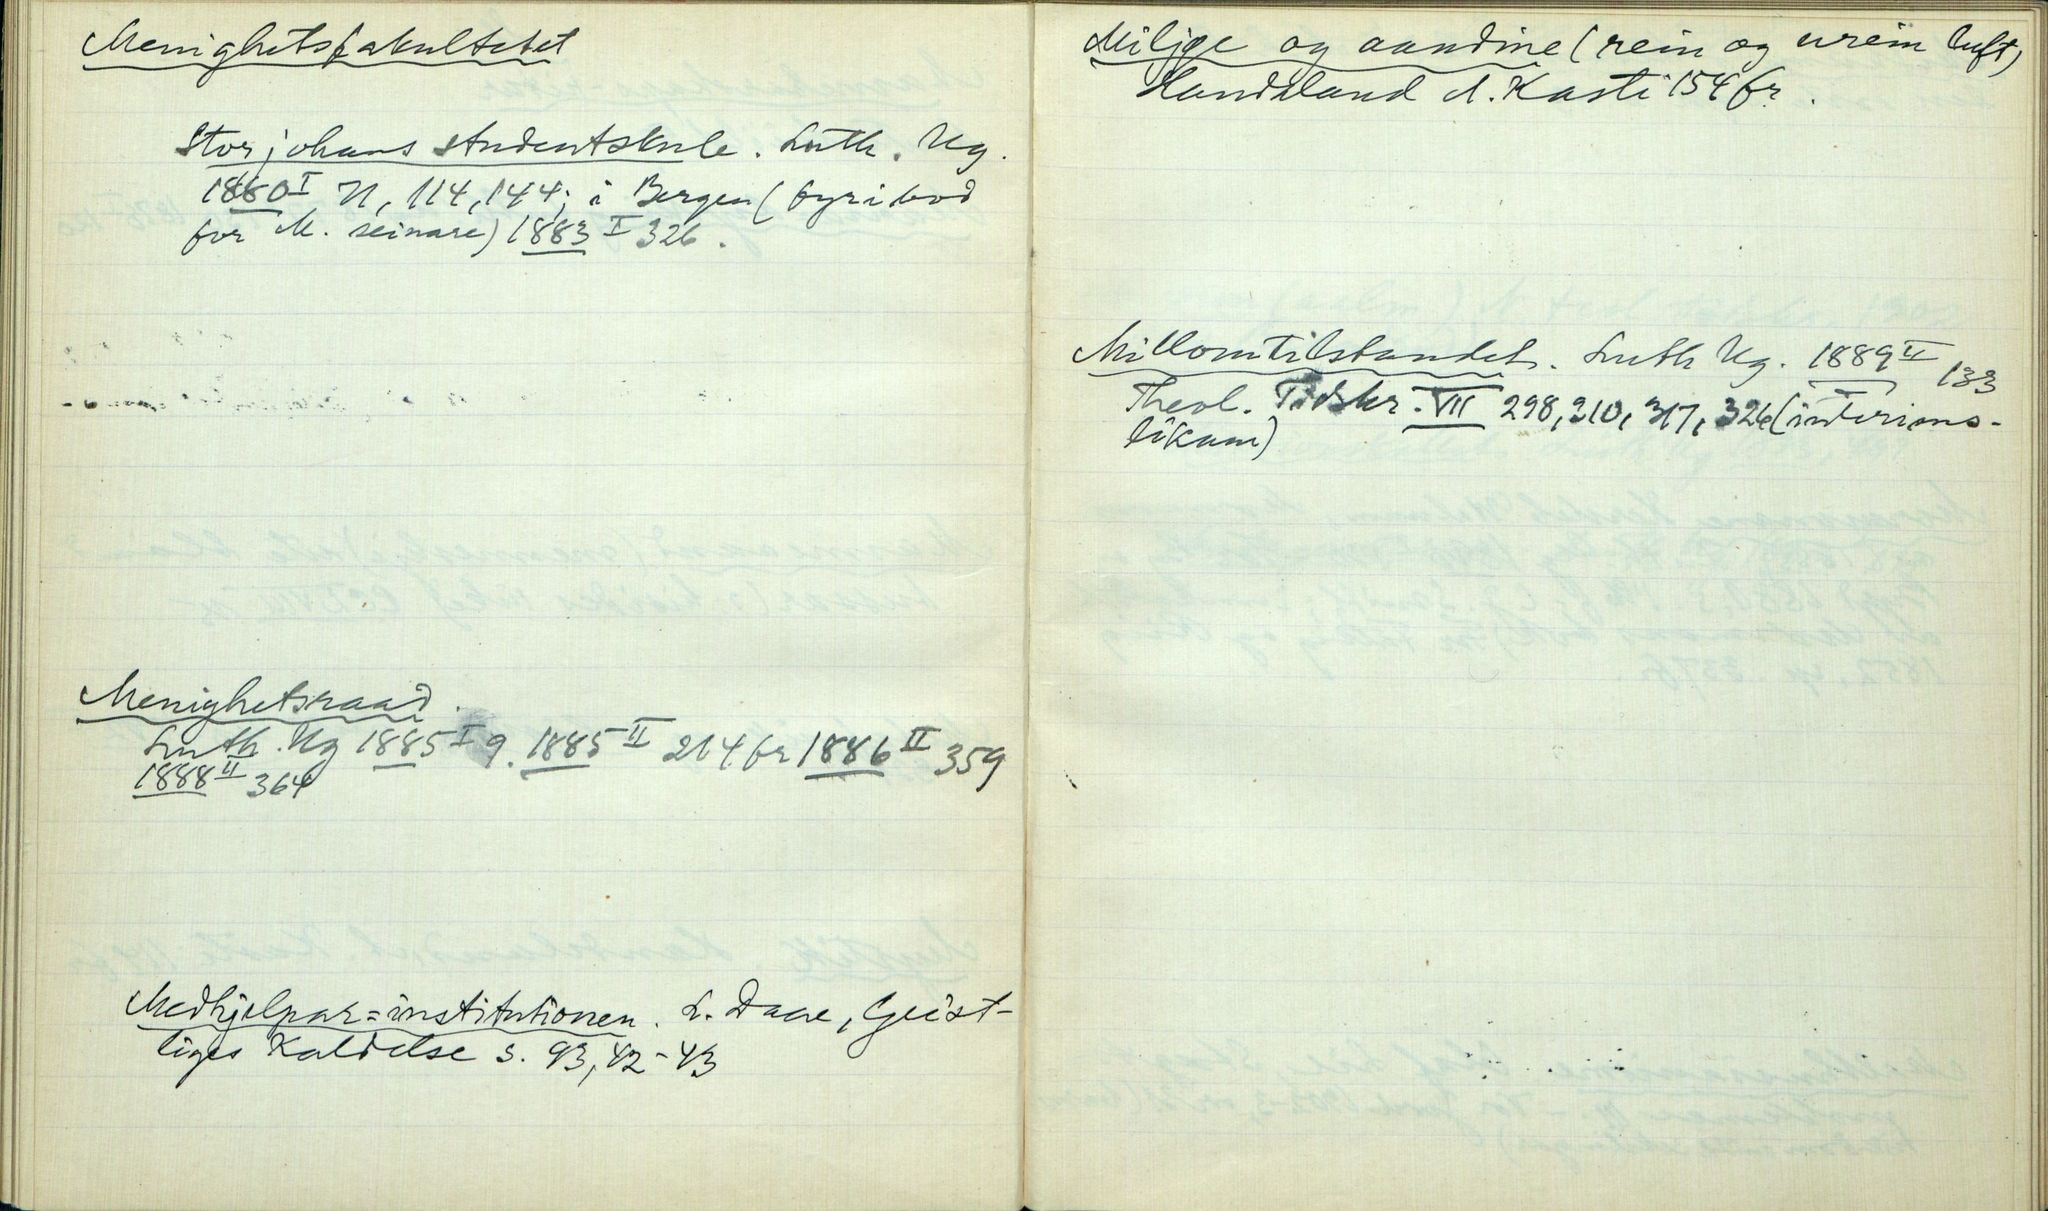 Menighetsfakultetet
Storjohans studentskule. Luth. Ug.
1880 I 71, 114, 144; i Bergen (fyribod
for M. seinare) 1883 I 326.
Menighetsraad.
Luth. Ug 1885 I 9. 1885 II 214 fr 1886 II 359
1888 II 364
Medhjelpar=institutionen. L. Daae, Geist-
liges Kaldelse s. 93, 42-43
Miljøe og aandine (rein og urein luft)
Handaland d. Kasti 154 fr.
Millomtilstandet. Luth Ug. 1889 II 133
Theol. Tidskr. VII 298, 310, 317, 326 (interims-
likam)